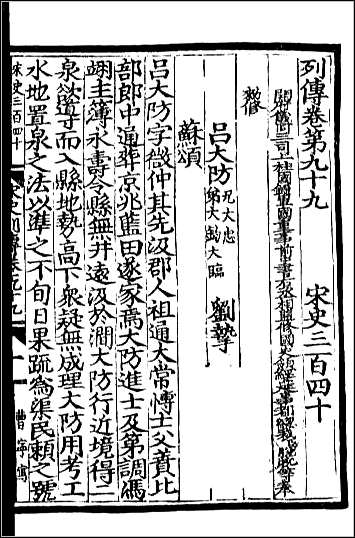 列傳卷第九十九　宋史三百四十
開府儀同三司上柱國錄軍國重事前中書右丞相監修國史領經筵事都總裁臣脫脫等奉
敕修
呂大防　兄大忠　弟大鈞大臨　劉摯
蘇頌
呂大防字微仲其先汲郡人祖通太常博士父蕡比
部郎中通葬京兆藍田遂家焉大防進士及第調馮
翊主簿永壽令縣無井遠汲於澗大防行近境得二
泉欲導而入縣地勢高下衆疑無成理大防用考工
水地置泉之法以準之不旬日果疏為渠民賴之號
宋史三百四十